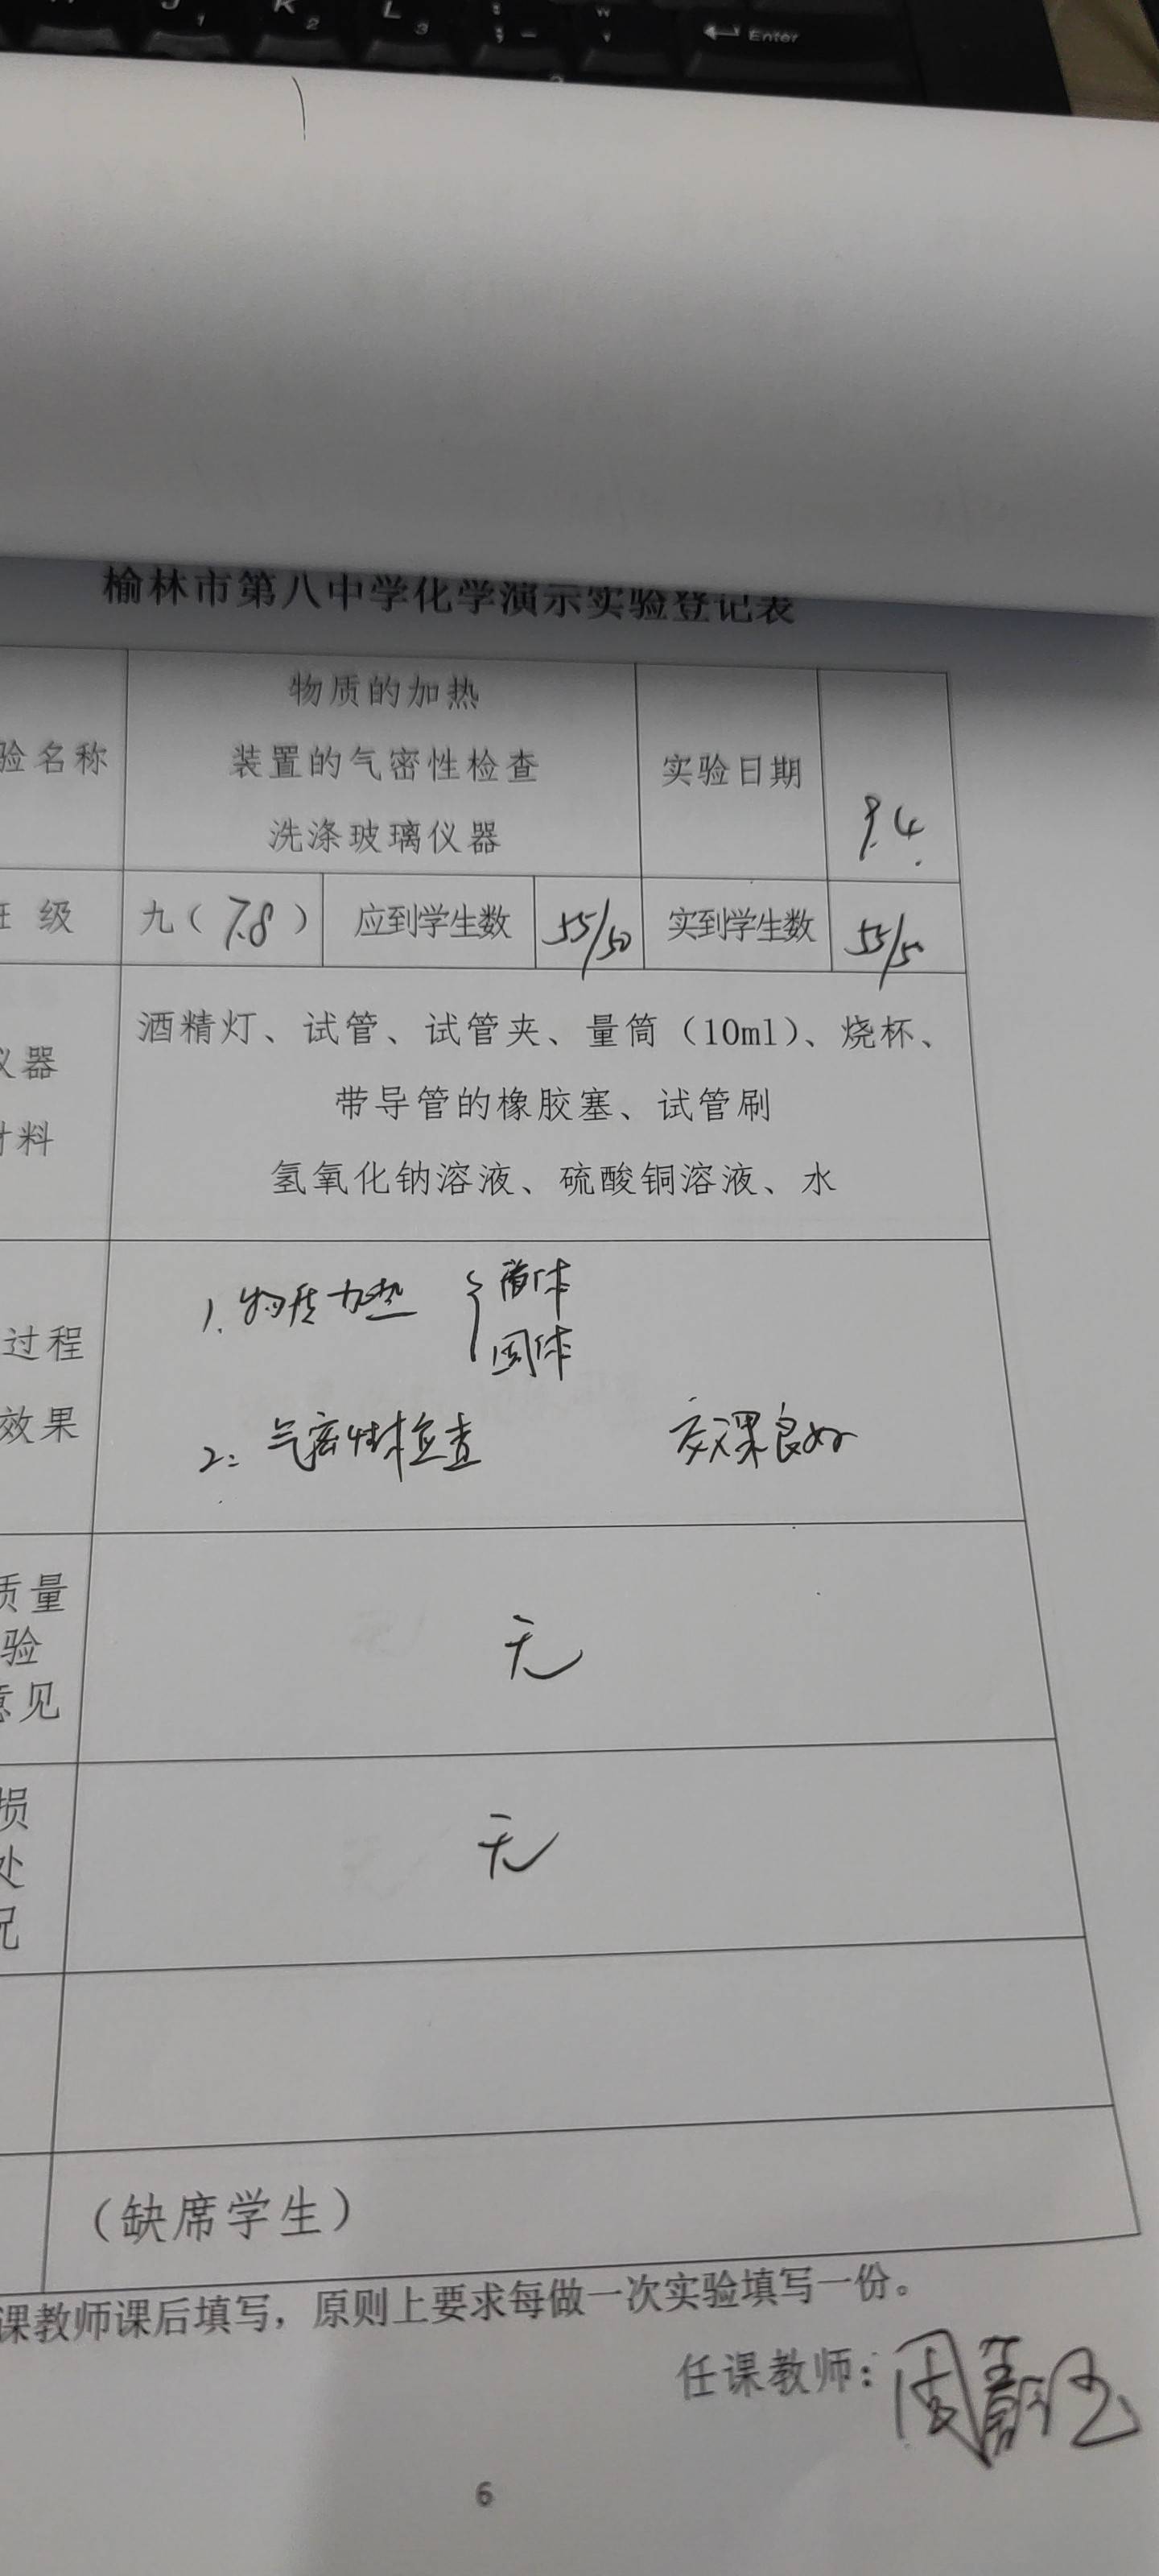 J
1
K
2
L
3
Enter
榆林市第八中学化学演示实验登记表
物质的加热
验名称
装置的气密性检查
实验日期
洗涤玻璃仪器
9.4.
级
九(7.8)
应到学生数
55/50
实到学生数
55/50
酒精灯、试管、试管夹、量筒(10ml)、烧杯、
器
带导管的橡胶塞、试管刷
料
氢氧化钠溶液、硫酸铜溶液、水
1. 物质加热
体
固体
过程
效果
2: 气密性检查
效果良好
质量
验
意见
无
损
处
无
(缺席学生)
课教师课后填写,原则上要求每做一次实验填写一份。
任课教师:周
6